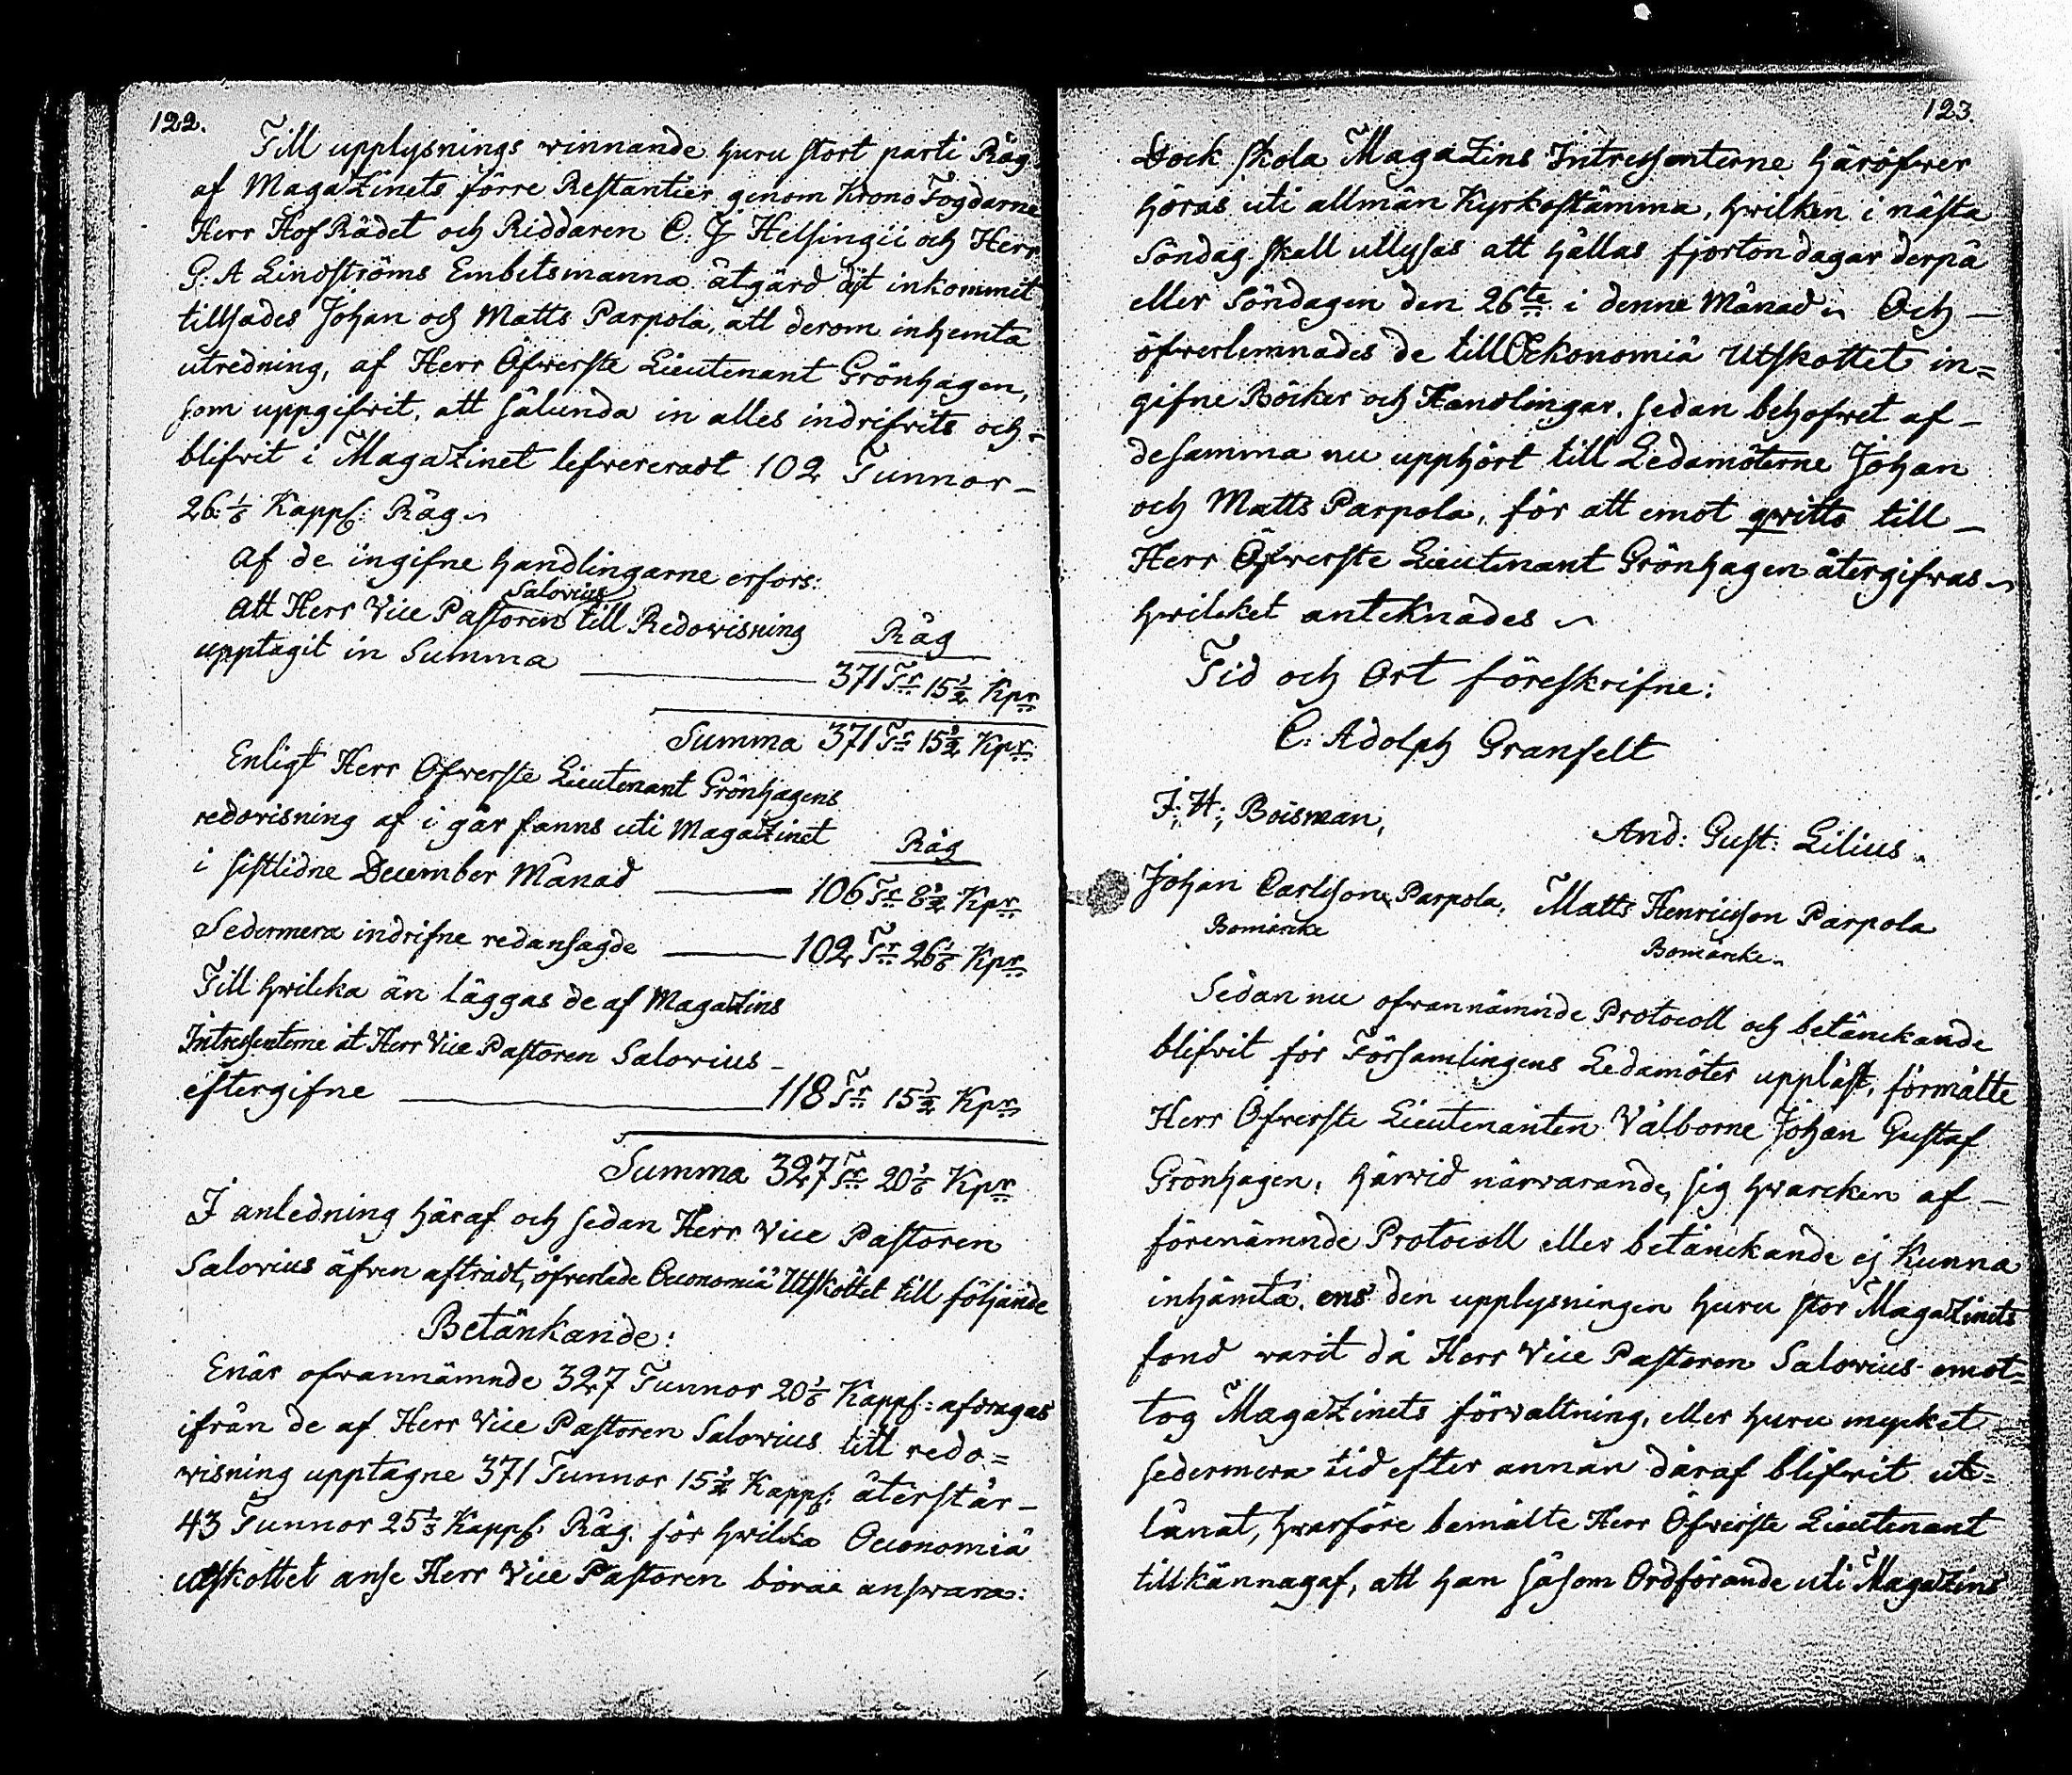 122.
Till upplysnings winnande huru stort parti Råg
af Magazinets förre Restantier genom Krono Fogdarne
Herr Hof Rådet och Riddaren C: J Helsingii och Herr
G: A Lindströms Embetsmanna åtgärd dit inkommit
tillsades Johan och Matts Parpola, att derom inhemta
utredning, af Herr Öfwerste Lieutenant Grönhagen,
som uppgifvit, att sålunda in alles indrifvits och
blifvit i Magazinet lefvereradt 102 Tunnor
26 1/6 Kappf: Råg
Af de ingifne handlingarne erfors:
Salovius
Att Herr Vice Pastoren till Redovisning
Råg
upptagit in Summa — 371 Tr 15 1/2 Kpr
Summa 371 Tr 15 1/2 Kpr
Enligt Herr Öfwerste Lieutenant Grönhagens
redovisning af i går fanns uti Magazinet
Råg
i sistlidne December Månad — 106 Tr 8 1/2 Kpr
Sedermera indrifne redansagde — 102 Tr 26 1/6 Kpr
Till hwilcka än läggas de af Magazins
Intressenterne åt Herr Vice Pastoren Salovius
eftergifne — 118 Tr 15 1/2 Kpr
Summa 327 Tr 20 1/6 Kpr
I anledning häraf och sedan Herr Vice Pastoren
Salovius äfven afträdt, öfverlade Oeconomiä Utskottet till följande
Betänkande:
Enär ofvannämnde 327 Tunnor 20 1/6 Kappf: afdragas
ifrån de af Herr Vice Pastoren Salovius till redo=
wisning upptagne 371 Tunnor 15 1/2 Kappf: återstår
43 Tunnor 25 1/3 Kappf: Råg, för hwilka Oeconomiä
utskottet anse Herr Vice Pastoren böra answara:
123
Dock skola Magazins Intressenterne häröfver
höras uti allmän Kyrkostämma, hwilken i nästa
Söndag skall utlysas att hållas fjorton dagar derpå
eller Söndagen den 26te i denne Månad Och
öfverlemnades de till Œkonomiä Utskottet in=
gifne Böcker och Handlingar, sedan behofvet af
desamma nu upphört till Ledamöterne Johan
och Matts Parpola, för att emot qvitto till
Herr Öfwerste Lieutenant Grönhagen återgifvas
hwilcket anteknades
Tid och Ort föreskrifne:
C: Adolph Granfelt
J; H; Boisman,
And: Gust: Lilius
Johan Carlsson Parpola, Matts Henricsson Parpola
Bomärcke Bomärcke
Sedan nu ofvannämnde Protocoll och betänckande
blifvit för Församlingens Ledamöter uppläst, förmälte
Herr Öfwerste Lieutenanten Välborne Johan Gustaf
Grönhagen, härvid närvarande, sig hvarcken af
förenämnde Protocoll eller betänckande ej kunna
inhämta, ens den upplysningen huru stor Magazinets
fond varit då Herr Vice Pastoren Salovius emot=
tog Magazinets förvaltning, eller huru mycket
sedermera tid efter annan däraf blifvit ut=
lånat, hvarföre bemälte Herr Öfwerste Lieutenant
tillkännagaf, att han såsom Ordförande uti Magazins